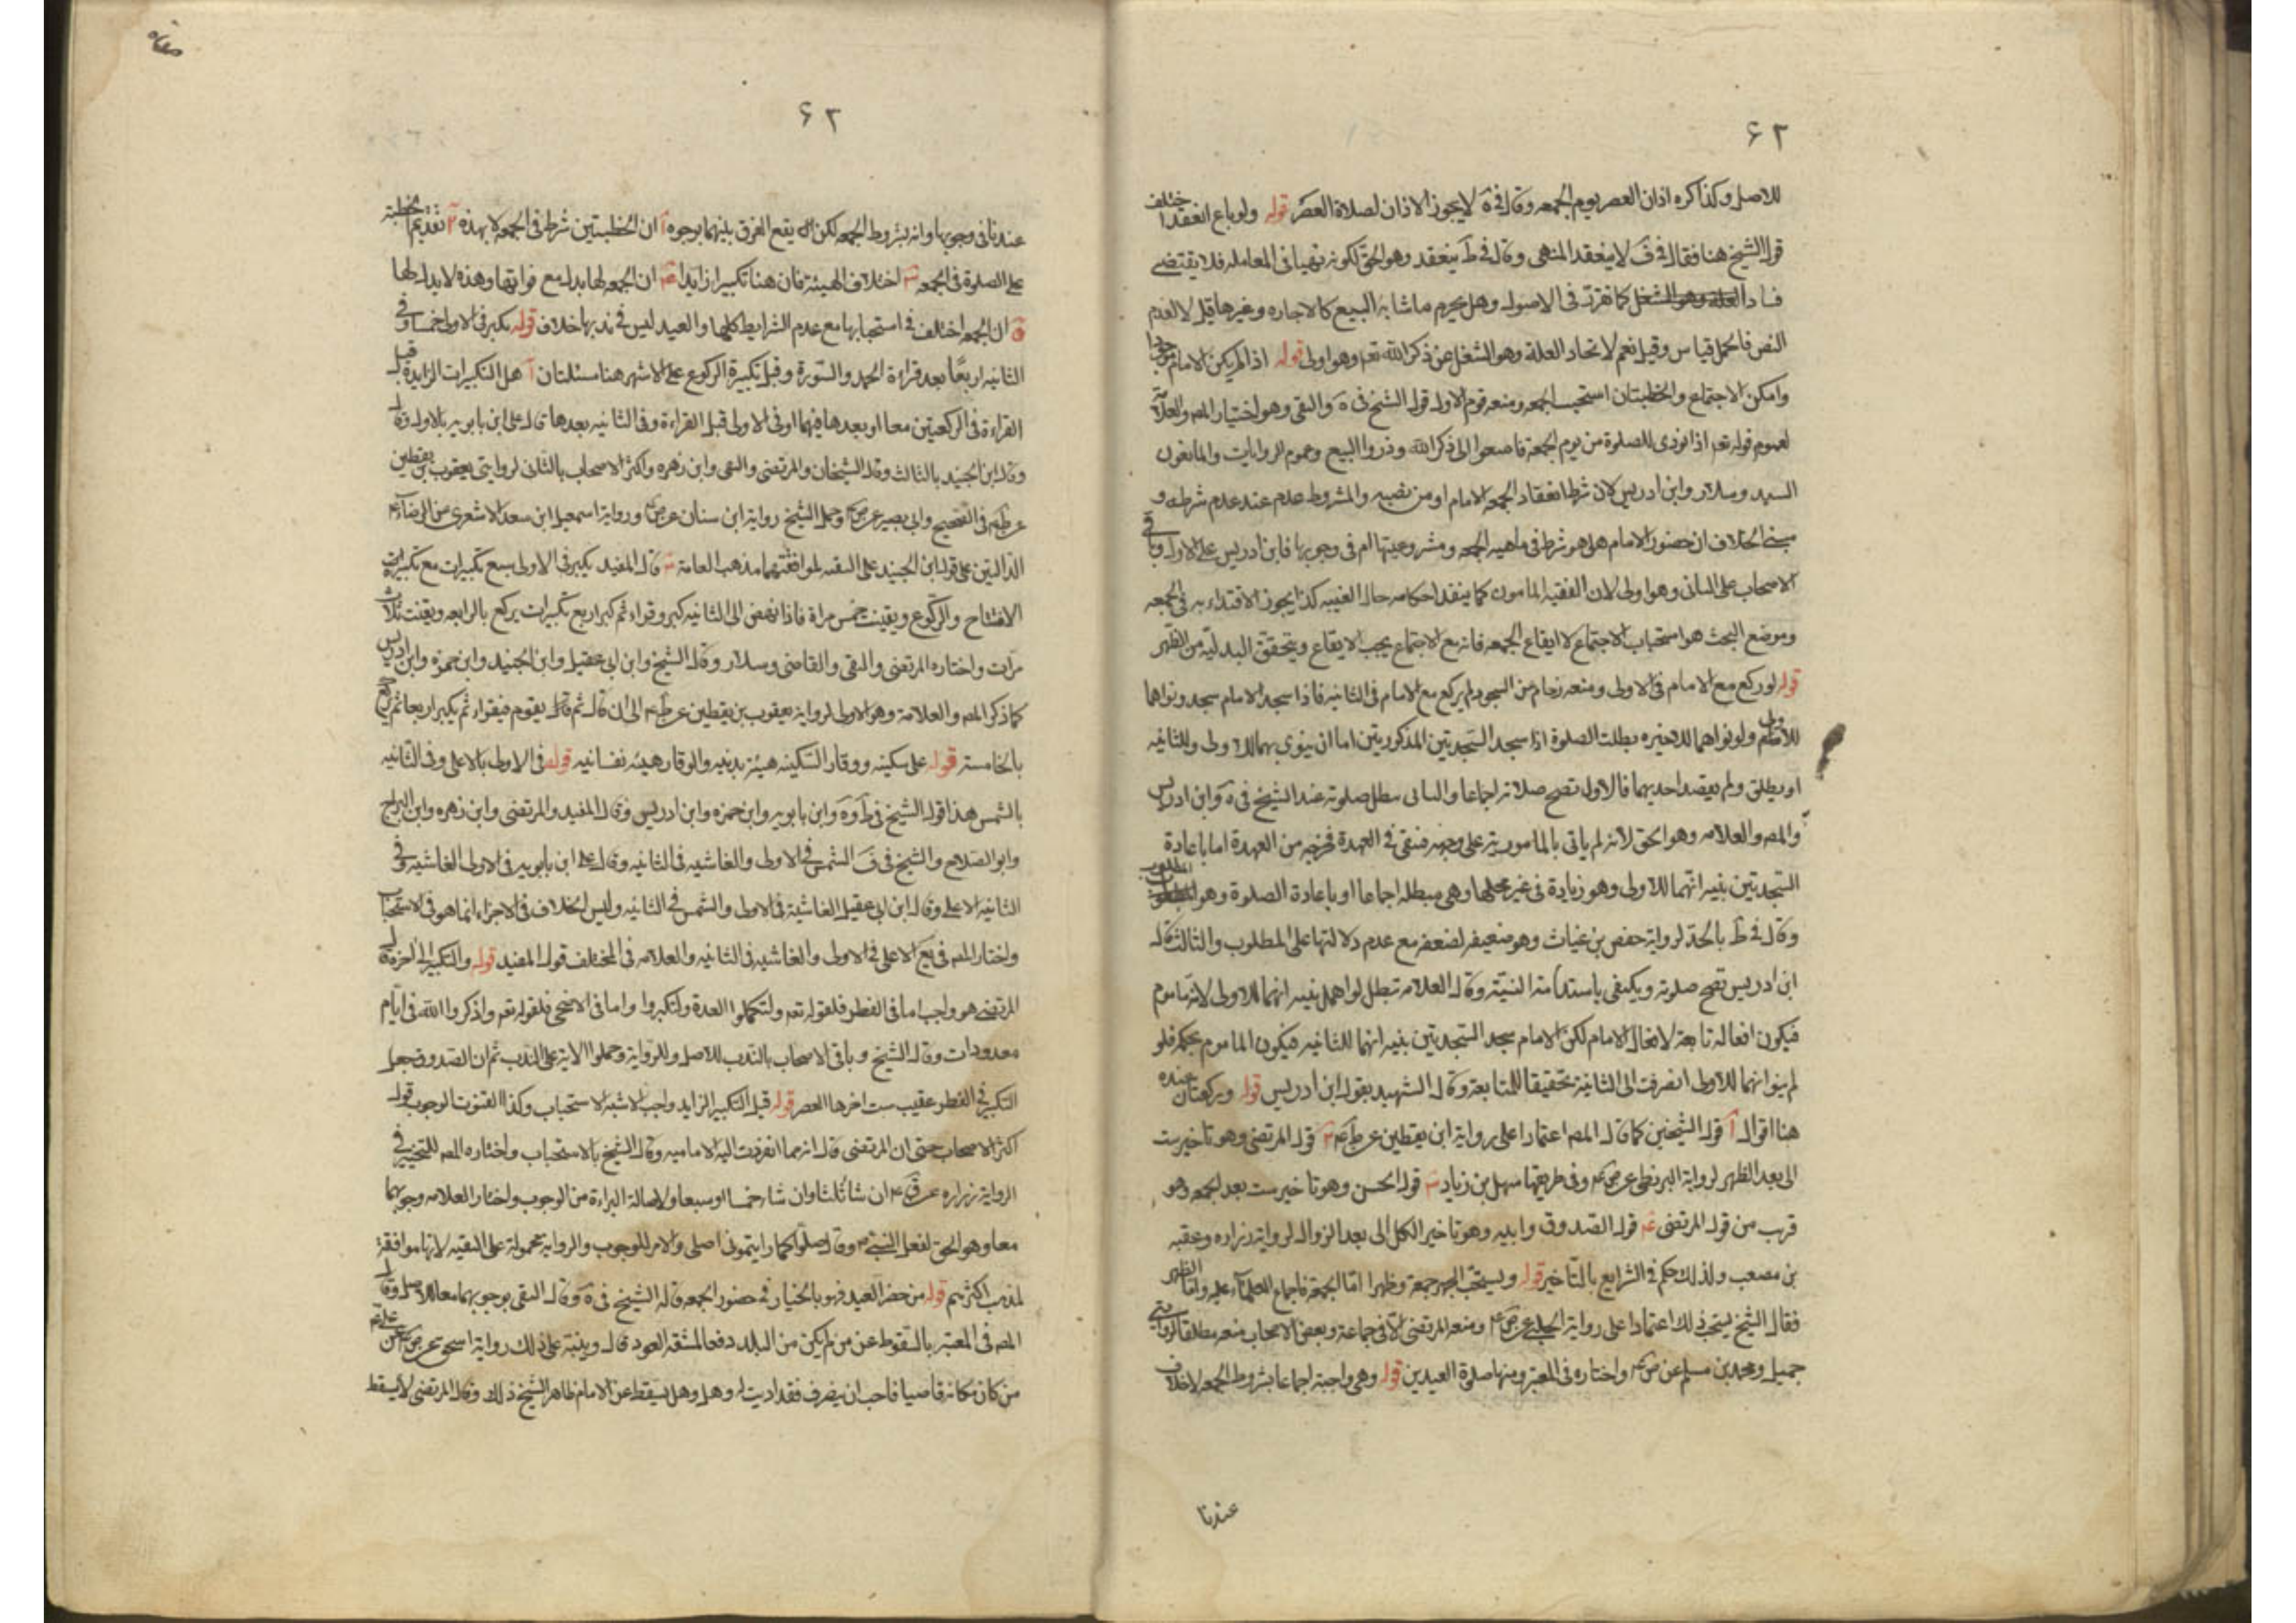 ۶۲
للاصل وكذا كره اذان العصر يوم الجمعه وقال في ية لا يجوز الاذان لصلاة العصر قوله ولو باع انعقد اختلف
قول الشيخ هنا فقال في ف لا ينعقد المنهى وقال في ط ينعقد وهو الحق لكونه نهيا في المعاملة فلا يقتضى
فساد كما تقرر في الاصول وهل يحرم ما شابه البيع كالاجاره وغيرها قيل لا لعدم
النص فالحمل قياس وقيل نعم لاتحاد العلة وهو الشغل عن ذكر الله تعم وهو اولى قوله اذا لم يكن الامام موجودا
وامكن الاجتماع والخطبتان استحب الجمعه ومنعه قوم الاول قول الشيخ في ية والتقى وهو اختيار المص والعلامة
لعموم قوله تعم اذا نودى للصلوة من يوم الجمعة فاسعوا الى ذكر الله وذروا البيع وعموم الروايات والمانعون
السيد وسلار وابن ادريس لان شرط انعقاد الجمعه الامام او من نصبه والمشروط عدم عند عدم شرطه و
مبنى الخلاف ان حضور الامام هل هو شرط في ماهيه الجمعه ومشروعيتها ام في وجوبها فابن ادريس على الاول وباقى
الاصحاب على الثانى وهو اولى لان الفقيه المامون كما ينفذ احكامه حال الغيبه كذا يجوز الاقتداء به في الجمعه
وموضع البحث هو استحباب الاجتماع لا ايقاع الجمعه فانه مع الاجتماع يجب الايقاع ويتحقق البدليه من الظهر
قوله لو ركع مع الامام في الاولى ومنعه زحام عن السجود لم يركع مع الامام في الثانيه فاذا سجد الامام سجد ونواهما
للاولى ولو نواهما للاخيره بطلت الصلوة اذا سجد السجدتين المذكورتين اما ان ينوى بهما للاولى وللثانيه
او يطلق ولم يقصد احديهما فالاول تصح صلاته اجماعا والثانى تبطل صلوته عند الشيخ في ية وابن ادريس
والمص والعلامه وهو الحق لانه لم ياتى بالمامور به على وجهه فتبقى في العهدة فخرجه من العهدة اما باعادة
السجدتين بنيه انهما للاولى وهو زيادة في غير محلها وهى مبطله اجماعا او باعادة الصلوة وهو المطلوب
وقال في ط بالحذ لرواية حفص بن غياث وهو ضعيف لضعفه مع عدم دلالتها على المطلوب والثالث قال
ابن ادريس تصح صلوته ويكتفى باستدامة النية وقال العلامه تبطل لو اهمل بنيه انهما للاولى لانه ماموم
فيكون افعاله تابعة لافعال الامام لكن الامام سجد السجدتين بنيه انهما للثانيه فيكون الماموم بحكمه فلو
لم ينو انهما للاولى انصرفت الى الثانية تحقيقا للمتابعة وقال الشهيد بقول ابن ادريس قوله وركعتان عنده
هنا اقوال آ قول الشيخين كما قال المص اعتمادا على رواية ابن يقطين عن ظم قول المرتضى وهو تاخير ست
الى بعد الظهر لرواية البزنطى عن ضا وفى طريقها سهل بن زياد قول الحسن وهو تاخير ست بعد الجمعه وهو
قرب من قول المرتضى قول الصدوق وابيه وهو تاخير الكل الى بعد الزوال لرواية زراره وعقبه
بن مصعب ولذلك حكم في الشرايع بالتاخير قوله ويستحب الجهر جمعة وظهرا اما الجمعة فاجماع العلماء عليه واما الظهر
فقال الشيخ يستحب ذلك اعتمادا على رواية الحلبى عن ص ومنعه المرتضى الا في جماعة وبعض الاصحاب منعه مطلقا لروايتى
جميل ومحمد بن مسلم عن ص واختاره في المعتبر ومنها صلوة العيدين قوله وهى واجبة اجماعا بشروط الجمعه لا خلاف
عندنا
۶۲
عندنا فى وجوبها وانه بشروط الجمعه لكن يقع الفرق بينهما بوجوه آ ان الخطبتين شرط في الجمعه لا بهذه تقديم الخطبة
على الصلوة في الجمعه اختلاف الهيئة فان هنا تكبيرا زايدا ان الجمعه لها بدل مع فواتها وهذه لا بدل لها
ان الجمعه اختلف في استحبابها مع عدم الشرايط كلها والعيد ليس في ندبها خلاف قوله يكبر في الاولى خمسا وفى
الثانيه اربعا بعد قراءة الحمد والسورة وقبل تكبيرة الركوع على الاشهر هنا مسئلتان آ هل التكبيرات الزايدة قبل
القراءة في الركعتين معا او بعدها فيهما او فى الاولى قبل القراءة وفى الثانيه بعدها قال على ابن بابويه بالاول وقال
وقال ابن الجنيد بالثالث وقال الشيخان والمرتضى والتقى وابن زهره واكثر الاصحاب بالثانى لروايتى يعقوب بن يقطين
عن ظم في الصحيح وابى بصير عن ص وحمل الشيخ رواية ابن سنان عن ص ورواية اسمعيل ابن سعد الاشعرى عن الرضا
الدالتين على قول ابن الجنيد على التقيه لموافقتهما مذهب العامة قال المفيد يكبر في الاولى سبع تكبيرات مع تكبيرتى
الافتتاح والركوع ويقنت خمس مراة فاذا نهض الى الثانيه كبر وقراء ثم كبر اربع تكبيرات يركع بالرابعه ويقنت ثلاث
مرات واختاره المرتضى والتقى والقاضى وسلار وقال الشيخ وابن ابى عقيل وابن الجنيد وابن حمزه وابن ادريس
كما ذكر المص والعلامة وهو الاولى لرواية يعقوب بن يقطين عن ظم الى ان قال ثم قال يقوم فيقراء ثم يكبر اربعا ثم يركع
بالخامسة قوله على سكينه ووقار السكينه هيئة بدنيه والوقار هيئه نفسانيه قوله في الاولى بالاعلى وفى الثانيه
بالشمس هذا قول الشيخ في ط وية وابن بابويه وابن حمزه وابن ادريس وقال المفيد والمرتضى وابن زهره وابن البراج
وابو الصلاح والشيخ في ف الشمس في الاولى والغاشيه في الثانيه وقال على ابن بابويه في الاولى الغاشيه وفى
الثانيه الاعلى وقال ابن ابى عقيل الغاشية في الاولى والشمس في الثانيه وليس الخلاف في الاجزاء انما هو في الاستحباب
واختار المص في يع الاعلى في الاولى والغاشيه في الثانيه والعلامه في المختلف قول المفيد قوله والتكبير الى اخره قال
المرتضى هو واجب اما في الفطر فلقوله تعم ولتكملوا العدة ولتكبروا واما في الاضحى فلقوله تعم واذكروا الله في ايام
معدودات وقال الشيخ وباقى الاصحاب بالندب للاصل وللرواية وحملوا الاية على الندب ثم ان الصدوق جعل
التكبير في الفطر عقيب ست اخرها العصر قوله قبل التكبير الزايد واجب الاشبه الاستحباب وكذا القنوت الوجوب قول
اكثر الاصحاب حتى ان المرتضى قال انه مما انفردت اليه الاماميه وقال الشيخ بالاستحباب واختاره المص للتخيير في
الرواية زراره عن ق ان شاء ثلثا وان شاء خمسا او سبعا ولاصالة البراءة من الوجوب واختار العلامه وجوبهما
معا وهو الحق لفعل النبى وقال صلوا كما رايتمونى اصلى والامر للوجوب والرواية محمولة على التقيه لانها موافقة
لمذهب اكثرهم قوله من حضر العيد فهو بالخيار في حضور الجمعه قاله الشيخ في ية وقال التقى بوجوبهما معا للاصل وقال
المص في المعتبر بالسقوط عن من لم يكن من البلد دفعا لمشقة العود قال وينبه على ذلك رواية اسحق عن ص عن على
من كان مكانه قاصيا فاحب ان ينصرف فقد اديت له وهل يسقط عن الامام ظاهر الشيخ ذلك وقال المرتضى لا يسقط